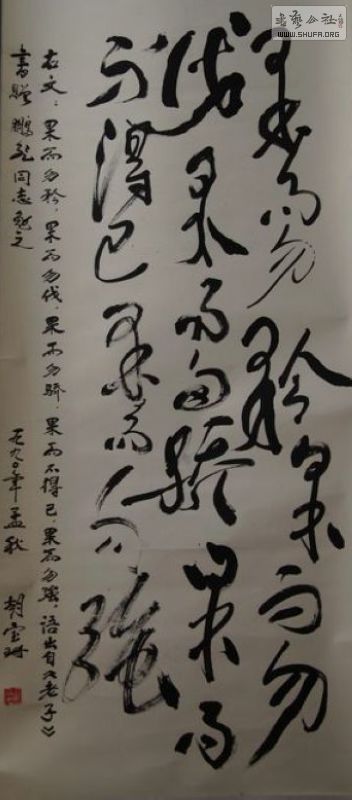 果而勿矜果而勿
伐果而勿骄果而
不得已果而勿强
右文：果而勿矜，果而勿伐，果而勿骄，果而不得已，果而勿强，语出自《老子》
书赠鹏龙同志勉之
一九九〇年孟秋 胡宝珊
書藝公社
WWW.SHUFA.ORG